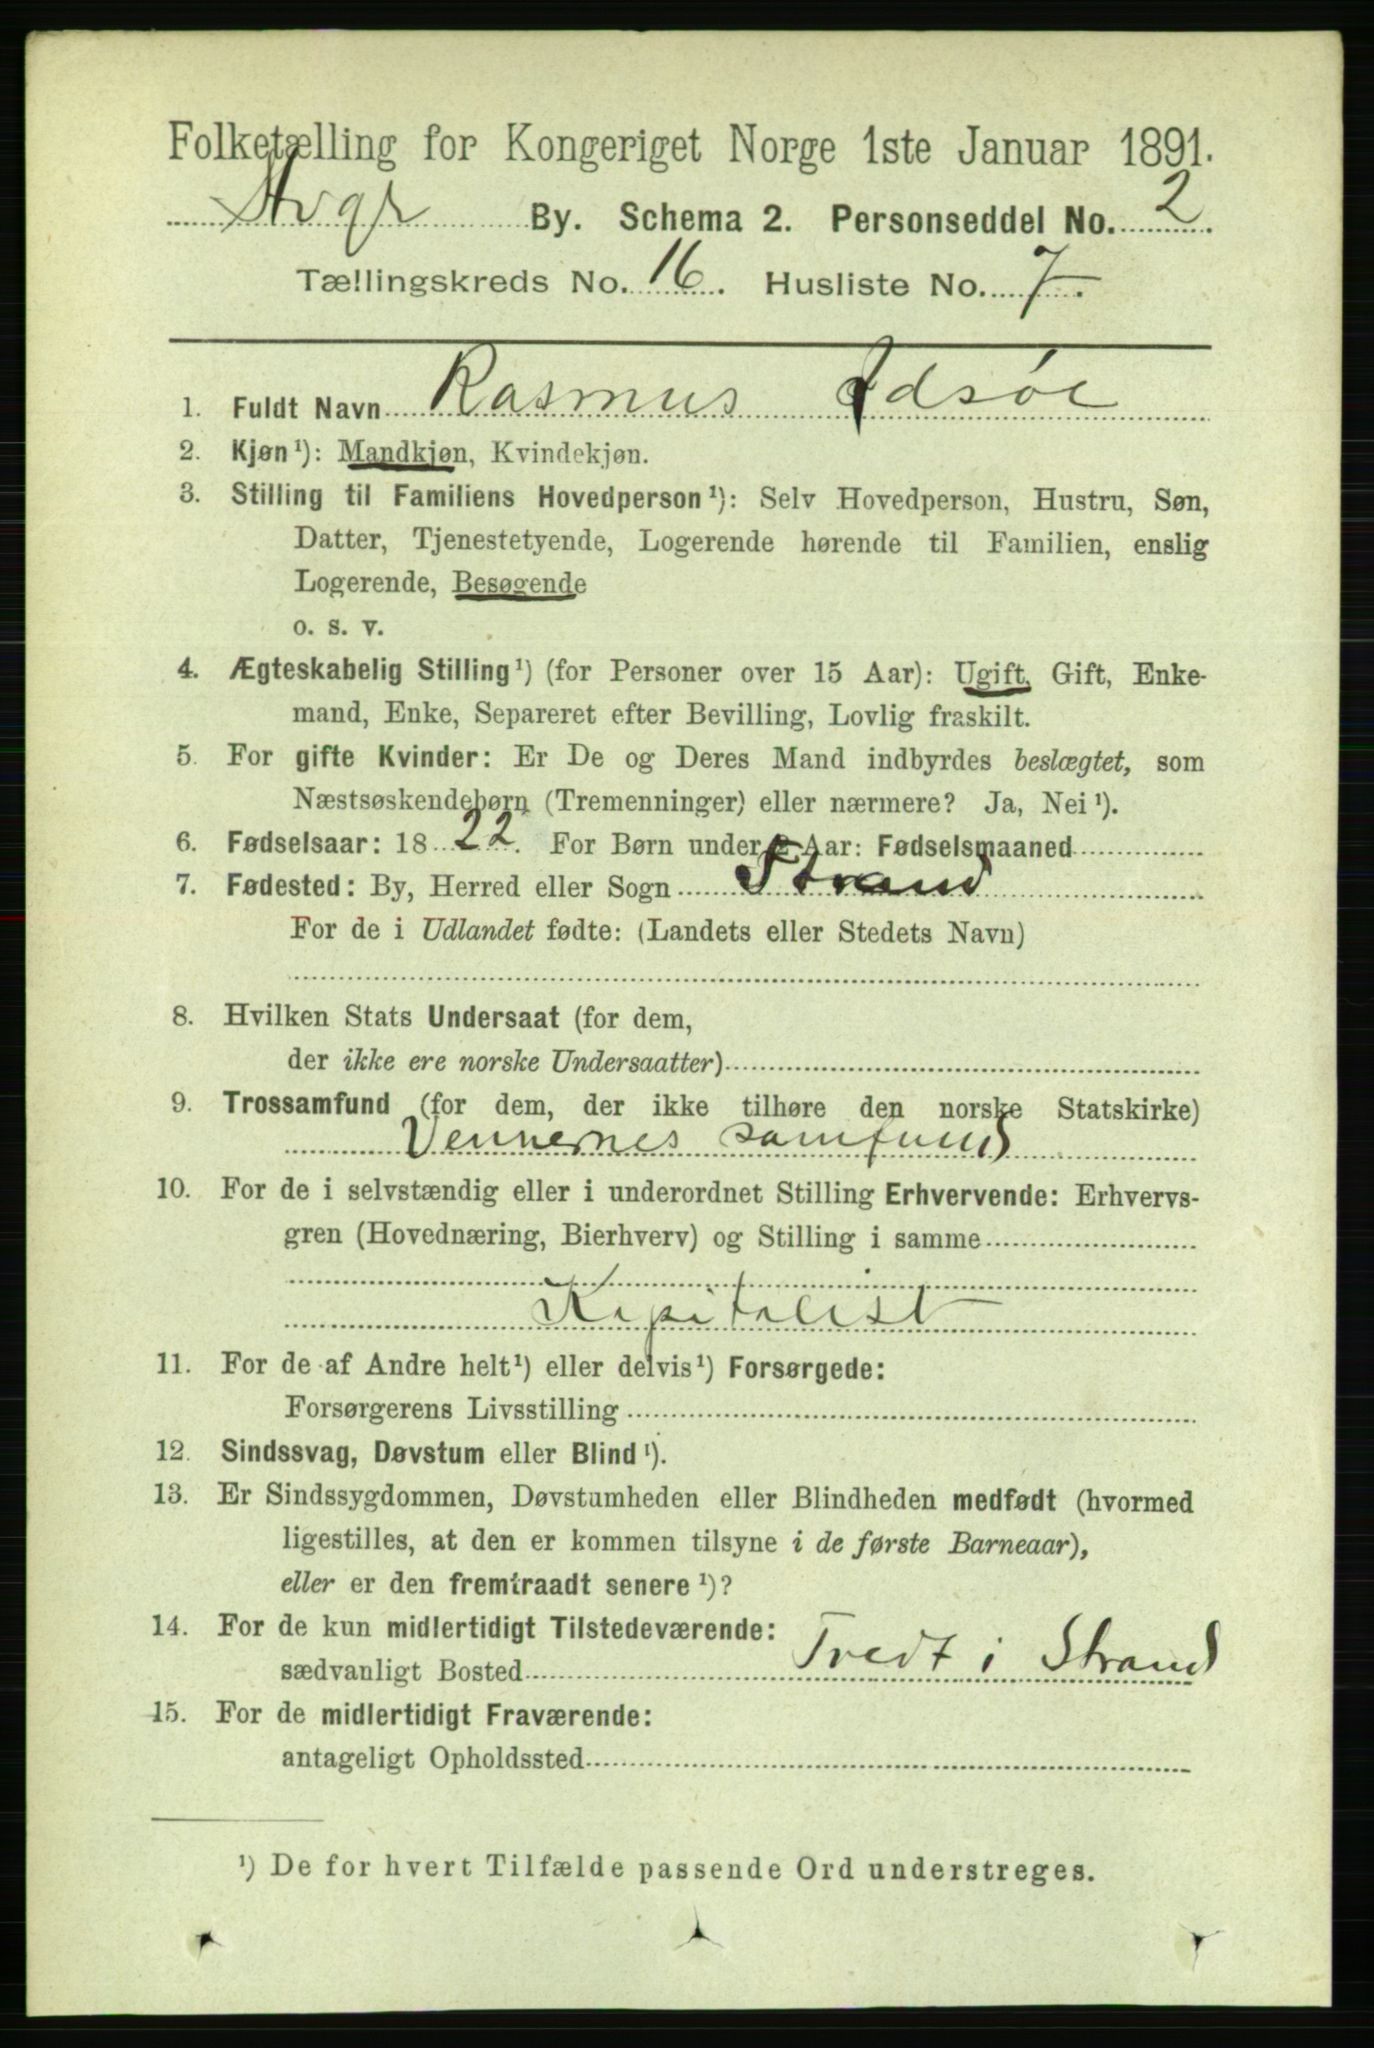 Folketælling for Kongeriget Norge 1ste Januar 1891.
Stvgr By. Schema 2. Personseddel No. 2.
Tællingskreds No. 16. Husliste No. 7.
1. Fuldt Navn Rasmus Idsøe
2. Kjøn¹): Mandkjøn, Kvindekjøn.
3. Stilling til Familiens Hovedperson¹): Selv Hovedperson, Hustru, Søn,
Datter, Tjenestetyende, Logerende hørende til Familien, enslig
Logerende, Besøgende
o. s. v.
4. Ægteskabelig Stilling¹) (for Personer over 15 Aar): Ugift, Gift, Enke-
mand, Enke, Separeret efter Bevilling, Lovlig fraskilt.
5. For gifte Kvinder: Er De og Deres Mand indbyrdes beslægtet, som
Næstsøskendebørn (Tremenninger) eller nærmere? Ja, Nei¹).
6. Fødselsaar: 1822. For Børn under 2 Aar: Fødselsmaaned
7. Fødested: By, Herred eller Sogn Strand
For de i Udlandet fødte: (Landets eller Stedets Navn)
8. Hvilken Stats Undersaat (for dem,
der ikke ere norske Undersaatter)
9. Trossamfund (for dem, der ikke tilhøre den norske Statskirke)
Vennernes samfund
10. For de i selvstændig eller i underordnet Stilling Erhvervende: Erhvervs-
gren (Hovednæring, Bierhverv) og Stilling i samme
Kapitalist
11. For de af Andre helt¹) eller delvis¹) Forsørgede:
Forsørgerens Livsstilling
12. Sindssvag, Døvstum eller Blind¹).
13. Er Sindssygdommen, Døvstumheden eller Blindheden medfødt (hvormed
ligestilles, at den er kommen tilsyne i de første Barneaar),
eller er den fremtraadt senere¹)?
14. For de kun midlertidigt Tilstedeværende:
sædvanligt Bosted Tvedt i Strand
15. For de midlertidigt Fraværende:
antageligt Opholdssted
¹) De for hvert Tilfælde passende Ord understreges.